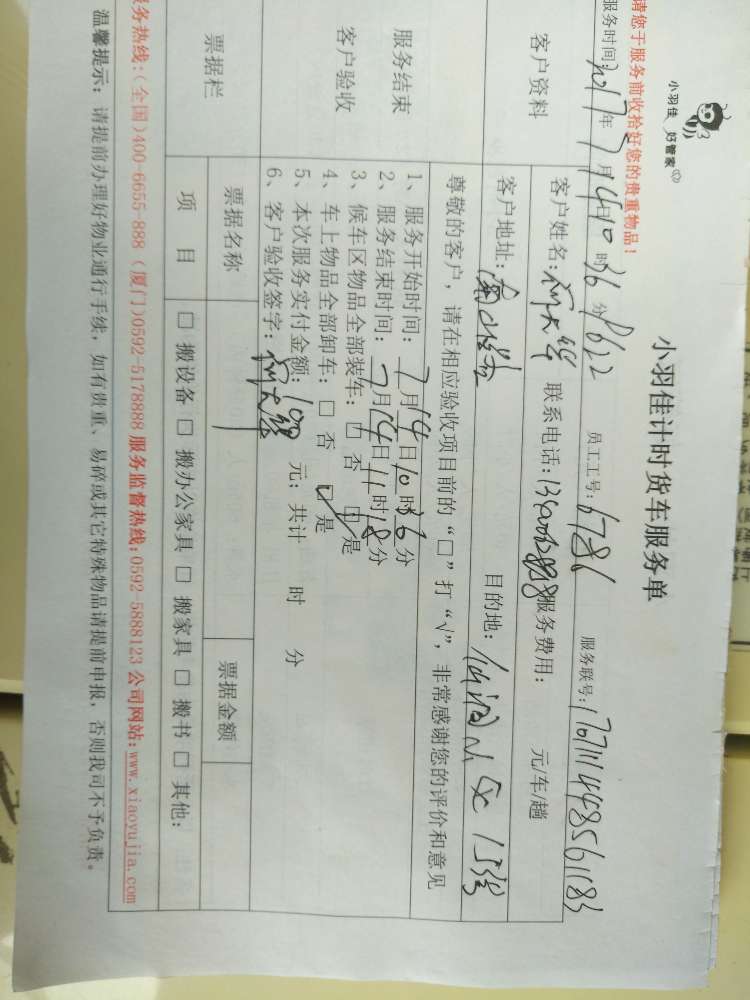 小羽佳 好管家
小羽佳计时货车服务单
请您于服务前收拾好您的贵重物品!
服务时间:2017年7月14日10时36分 员工工号:6786 服务联号:
客户资料
客户姓名: 联系电话: 服务费用: 元/车/趟
客户地址: 目的地:
服务结束
客户验收
尊敬的客户,请在相应验收项目前的“□”打“√”,非常感谢您的评价和意见
1、服务开始时间:7月14日10时36分
2、服务结束时间:7月14日11时18分
3、候车区物品全部装车:□ 否 □ 是
4、车上物品全部卸车:□ 否 □ 是
5、本次服务实付金额:100元;共计 时 分
6、客户验收签字:
票据栏
票据名称 票据金额
项 目 □ 搬设备 □ 搬办公家具 □ 搬家具 □ 搬书 □ 其他:
服务热线:(全国)400-6655-888 (厦门)0592-5178888 服务监督热线:0592-5888123 公司网站:www.xiaoyujia.com
温馨提示:请提前办理好物业通行手续,如有贵重、易碎或其它特殊物品请提前申报,否则我司不予负责。